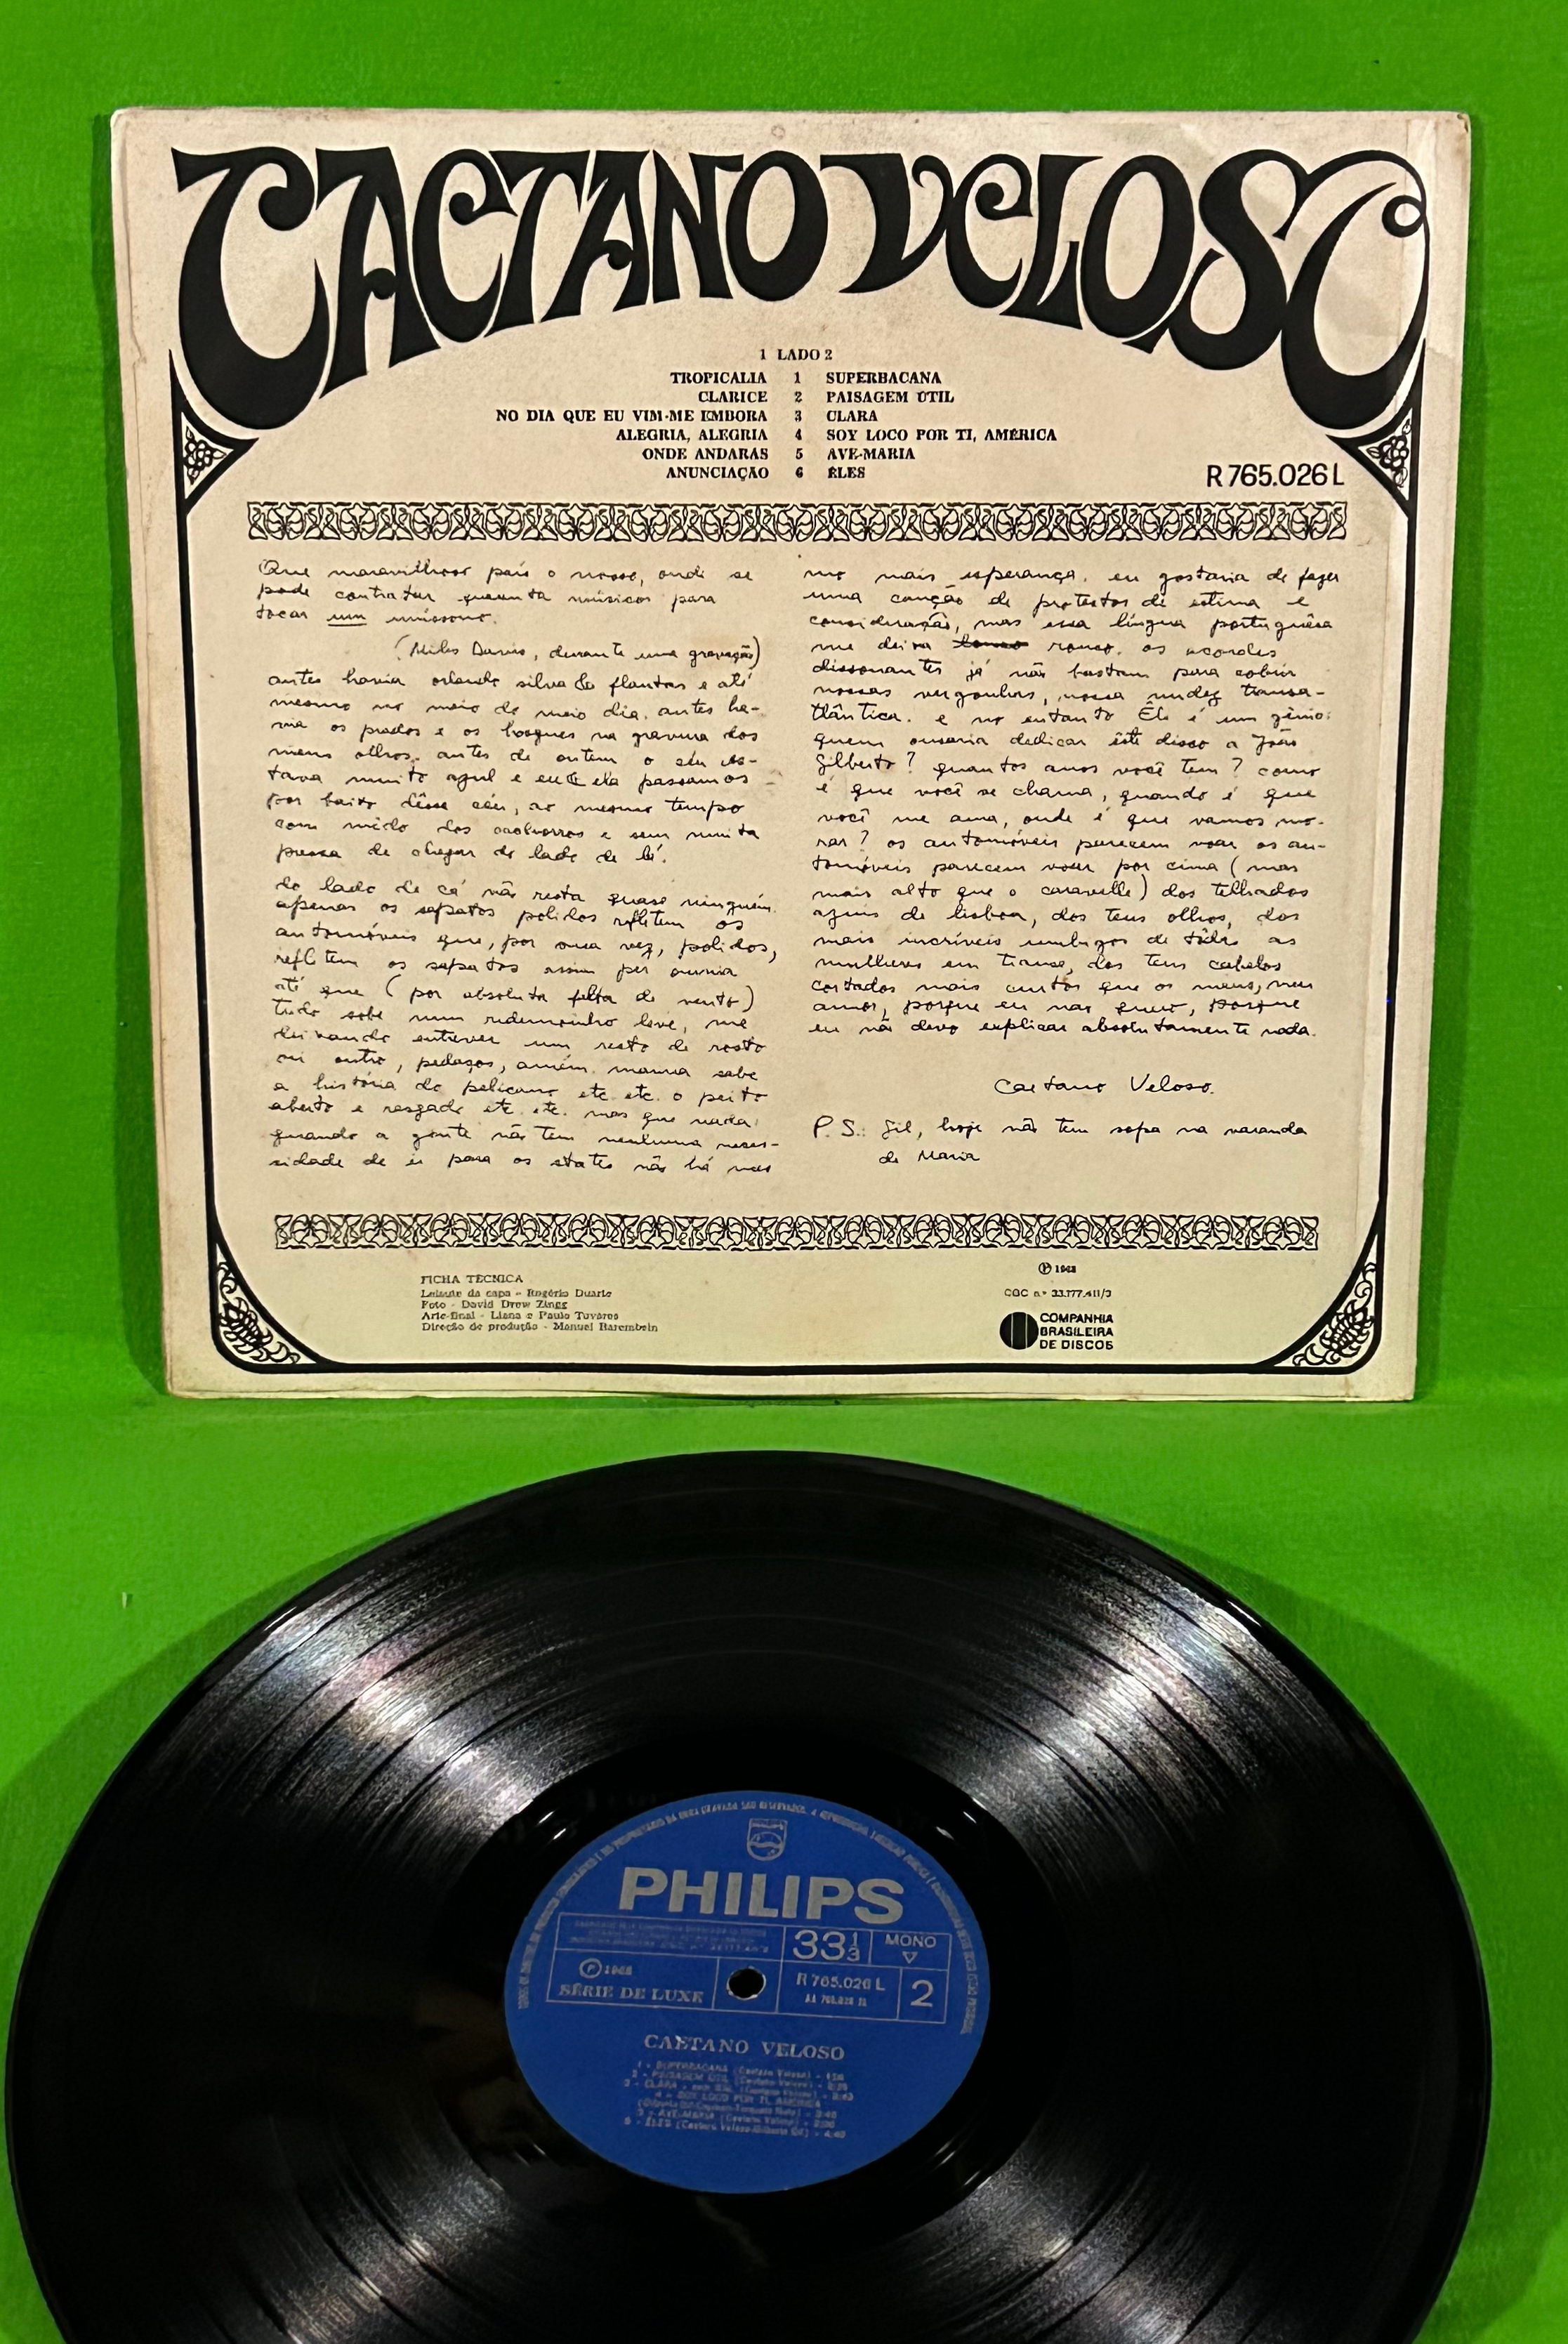 CAETANO VELOSO
1 LADO 2
TROPICALIA 1 SUPERBACANA
CLARICE 2 PAISAGEM ÚTIL
NO DIA QUE EU VIM-ME EMBORA 3 CLARA
ALEGRIA, ALEGRIA 4 SOY LOCO POR TI, AMÉRICA
ONDE ANDARAS 5 AVE-MARIA
ANUNCIAÇÃO 6 ÊLES
R 765.026 L
Que maravilhoso país o nosso, onde se
pode contratar quarenta músicos para
tocar um uníssono.
(Miles Davis, durante uma gravação)
antes havia orlando silva & flautas e até
mesmo no meio do meio dia. antes ha-
via os prados e os bosques na gravura dos
meus olhos. antes de ontem o céu es-
tava muito azul e eu & ela passamos
por baixo dêsse céu, ao mesmo tempo
com mêdo dos cachorros e sem muita
pressa de chegar do lado de lá.
do lado de cá não resta quase ninguém.
apenas os sapatos polidos refletem os
automóveis que, por sua vez, polidos,
refletem os sapatos assim per omnia
até que (por absoluta falta de vento)
tudo sobe num redemoinho leve, me
deixando entrever um resto de rosto
ou outro, pedaços, amém. mamma sabe
a história do pelicano etc. etc. o peito
aberto e rasgado etc. etc. mas que nada:
quando a gente não tem nenhuma neces-
sidade de ir para os states não há mes
mo mais esperança. eu gostaria de fazer
uma canção de protestos de estima e
consideração, mas essa língua portuguêsa
me deixa rouco. os acordes
dissonantes já não bastam para cobrir
nossas vergonhas, nossa nudez transa-
tlântica. e no entanto Êle é um gênio:
quem ousaria dedicar êste disco a João
Gilberto? quantos anos você tem? como
é que você se chama, quando é que
você me ama, onde é que vamos mo-
rar? os automóveis parecem voar os au-
tomóveis parecem voar por cima (mas
mais alto que o caravelle) dos telhados
azuis de lisboa, dos teus olhos, dos
mais incríveis umbigos de tôdas as
mulheres em transe, dos teus cabelos
cortados mais curtos que os meus, meu
amor, porque eu não quero, porque
eu não devo explicar absolutamente nada.
Caetano Veloso.
P. S.: Gil, hoje não tem sopa na varanda
de Maria
FICHA TÉCNICA
Leiaute da capa - Rogério Duarte
Foto - David Drew Zingg
Arte-final - Liana e Paulo Tavares
Direção de produção - Manuel Barembein
℗ 1968
CGC n.º 33.777.411/3
COMPANHIA
BRASILEIRA
DE DISCOS
PHILIPS
33 1/3 MONO
℗ 1968
SÉRIE DE LUXE
R 765.026 L
2
CAETANO VELOSO
1 - SUPERBACANA (Caetano Veloso)
2 - PAISAGEM ÚTIL (Caetano Veloso)
3 - CLARA (Caetano Veloso)
4 - SOY LOCO POR TI, AMÉRICA
5 - AVE-MARIA (Caetano Veloso)
6 - ÊLES (Caetano Veloso-Gilberto Gil) - 4:40